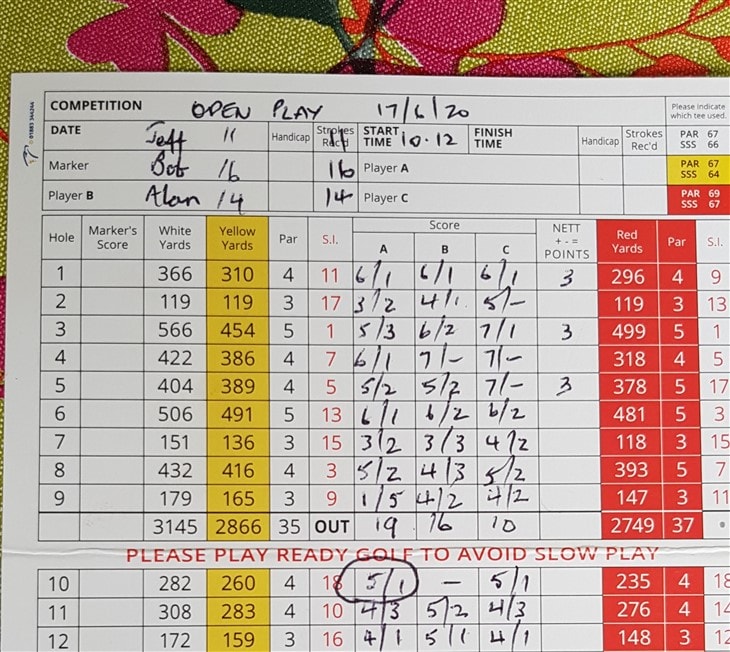 COMPETITION OPEN PLAY 17/6/20 Please indicate which tee used.
DATE Jeff 11 Handicap Strokes Rec'd 11 START TIME 10.12 FINISH TIME Handicap Strokes Rec'd PAR 67 SSS 66
Marker Bob 16 16 Player A PAR 67 SSS 64
Player B Alan 14 14 Player C PAR 69 SSS 67
Hole Marker's Score White Yards Yellow Yards Par S.I. Score A B C NETT + - = POINTS Red Yards Par S.I.
1 366 310 4 11 6/1 6/1 6/1 3 296 4 9
2 119 119 3 17 3/2 4/1 5/- 119 3 13
3 566 454 5 1 5/3 6/2 7/1 3 499 5 1
4 422 386 4 7 6/1 7/- 7/- 318 4 5
5 404 389 4 5 5/2 5/2 7/- 3 378 5 17
6 506 491 5 13 6/1 6/2 6/2 481 5 3
7 151 136 3 15 3/2 3/3 4/2 118 3 15
8 432 416 4 3 5/2 4/3 5/2 393 5 7
9 179 165 3 9 1/5 4/2 4/2 147 3 11
3145 2866 35 OUT 19 16 10 2749 37
PLEASE PLAY READY GOLF TO AVOID SLOW PLAY
10 282 260 4 18 5/1 - 5/1 235 4 18
11 308 283 4 10 4/3 5/2 4/3 276 4 14
12 172 159 3 16 4/1 5/1 4/1 148 3 12